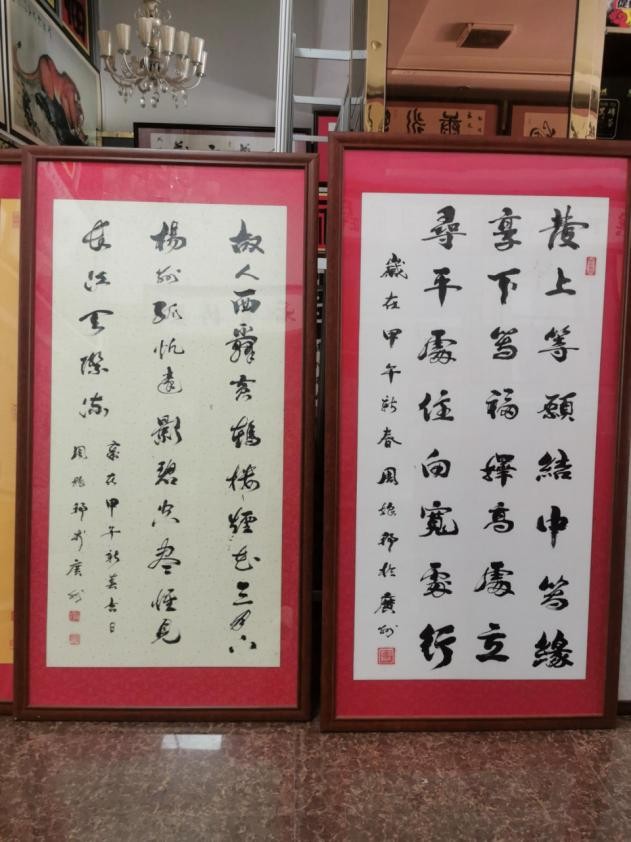 發上等願結中等緣
享下等福擇高處立
尋平處住向寬處行
歲在甲午新春周邦於廣州
故人西辭黃鶴樓煙花三月下
楊州孤帆遠影碧空盡惟見
長江天際流
歲在甲午新春吉日
周邦於廣州